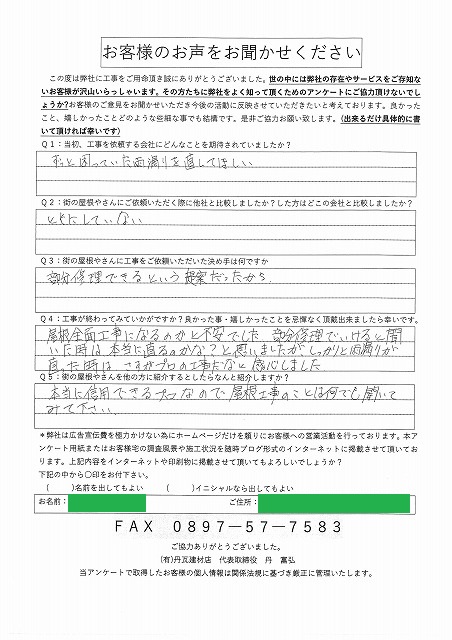 お客様のお声をお聞かせください
この度は弊社に工事をご用命頂き誠にありがとうございました。世の中には弊社の存在やサービスをご存知な
いお客様が沢山いらっしゃいます。その方たちに弊社をよく知って頂くためのアンケートにご協力頂けないでし
ょうか?お客様のご意見をお聞かせいただき今後の活動に反映させていただきたいと考えております。良かった
こと、嬉しかったことどのような些細な事でも結構です。是非ご協力お願い致します。(出来るだけ具体的に書
いて頂ければ幸いです)
Q1:当初、工事を依頼する会社にどんなことを期待されていましたか?
ずっと困っていた雨漏りを直してほしい
Q2:街の屋根やさんにご依頼いただく際に他社と比較しましたか?した方はどこの会社と比較しましたか?
とくにしていない
Q3:街の屋根やさんに工事をご依頼いただいた決め手は何ですか
部分修理できるという提案だったから。
Q4:工事が終わってみていかがですか?良かった事・嬉しかったことを忌憚なく頂戴出来ましたら幸いです。
屋根全面工事になるのかと不安でした。部分修理でいけると聞
いた時は本当に直るのかな?と思いましたが、しっかりと雨漏りが
直った時は、さすがプロの工事だなと感心しました
Q5:街の屋根やさんを他の方に紹介するとしたらなんと紹介しますか?
本当に信用できるプロなので、屋根工事のことは何でも聞いて
みて下さい。
*弊社は広告宣伝費を極力かけない為にホームページだけを頼りにお客様への営業活動を行っております。本ア
ンケート用紙またはお客様宅の調査風景や施工状況を随時ブログ形式のインターネットに掲載させて頂いてお
ります。上記内容をインターネットや印刷物に掲載させて頂いてもよろしいでしょうか?
下記の中から〇印をお付下さい。
( )名前を出してもよい ( )イニシャルなら出してもよい
お名前: ご住所:
FAX 0897-57-7583
ご協力ありがとうございました。
(有)丹瓦建材店 代表取締役 丹 富弘
当アンケートで取得したお客様の個人情報は関係法規に基づき厳正に管理いたします。